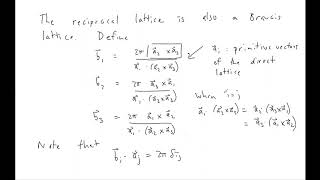 The reciprocal lattice is also a Bravais
lattice. Define
b⃗₁ = 2π (a⃗₂ × a⃗₃) / a⃗₁·(a⃗₂×a⃗₃)
a⃗ᵢ : primitive vectors
of the direct
lattice
b⃗₂ = 2π a⃗₃ × a⃗₁ / a⃗₁·(a⃗₂×a⃗₃)
b⃗₃ = 2π a⃗₁ × a⃗₂ / a⃗₁·(a⃗₂×a⃗₃)
when i=j
a⃗₁·(a⃗₂×a⃗₃) = a⃗₂·(a⃗₃×a⃗₁)
= a⃗₃·(a⃗₁×a⃗₂)
Note that
b⃗ᵢ · a⃗ⱼ = 2π δᵢⱼ